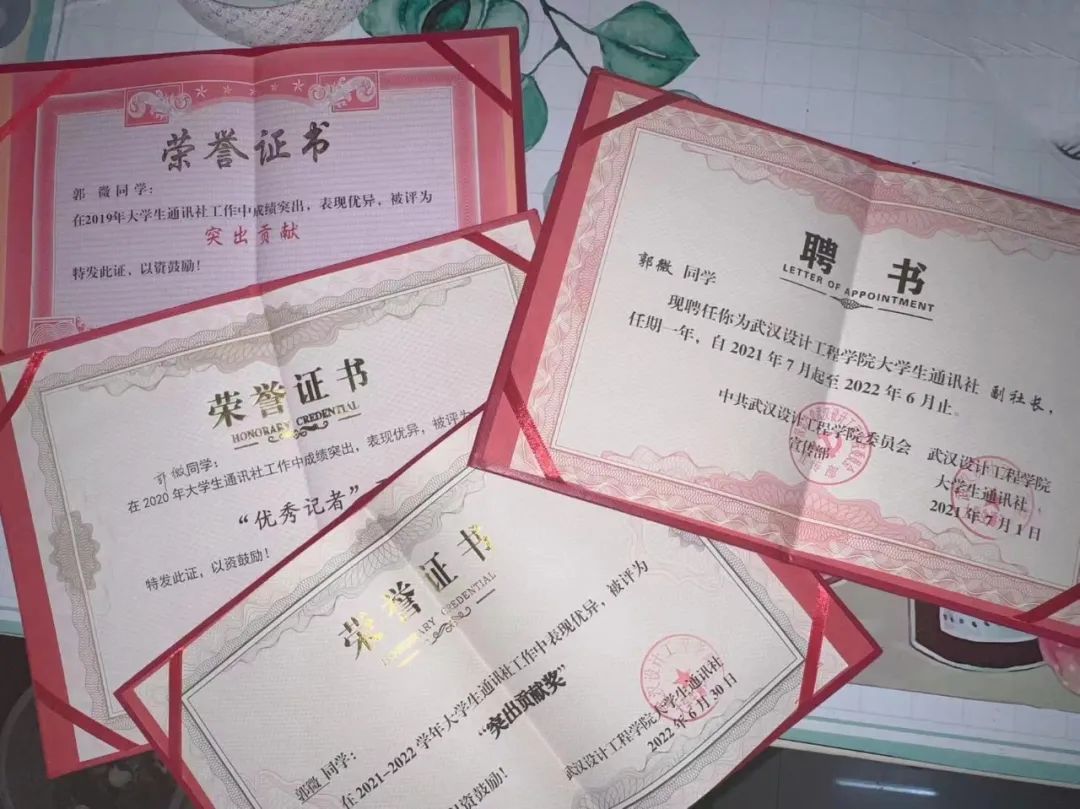 荣誉证书
郭 薇同学：
在2019年大学生通讯社工作中成绩突出，表现优异，被评为
突出贡献
特发此证、以资鼓励！
荣誉证书
HONORARY CREDENTIAL
薇同学：
在2020年大学生通讯社工作中成绩突出，表现优异，被评为
“优秀记者”
特发此证，以资鼓励！
荣誉证书
HONORARY CREDENTIAL
郭薇 同学：
在2021-2022学年大学生通讯社工作中表现优异，被评为
“突出贡献奖”
以资鼓励！
武汉设计工程学院大学生通讯社
2022年6月30日
聘书
LETTER OF APPOINTMENT
郭薇 同学
现聘任你为武汉设计工程学院大学生通讯社 副社长，
任期一年，自2021年7月起至2022年6月止。
中共武汉设计工程学院委员会 武汉设计工程学院
宣传部 大学生通讯社
2021年7月1日